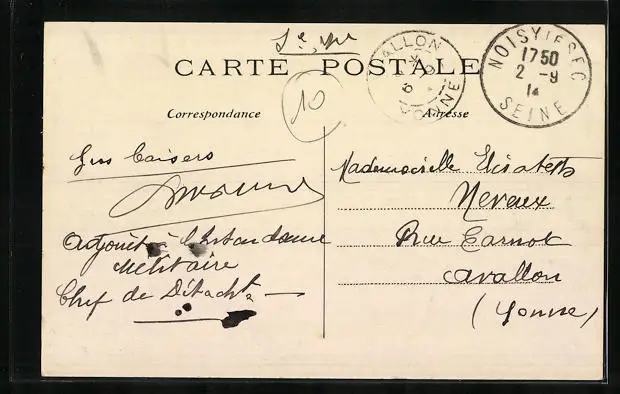 CARTE POSTALE
Correspondance
Adresse
AVALLON
YONNE
NOISY LE SEC
17 50
2 - 9
14
SEINE
10
Gros baisers
Adjoint à l'Intendance
Militaire
Chef de Détacht
Mademoiselle Elisabeth
Neveux
Rue Carnot
Avallon
(Yonne)